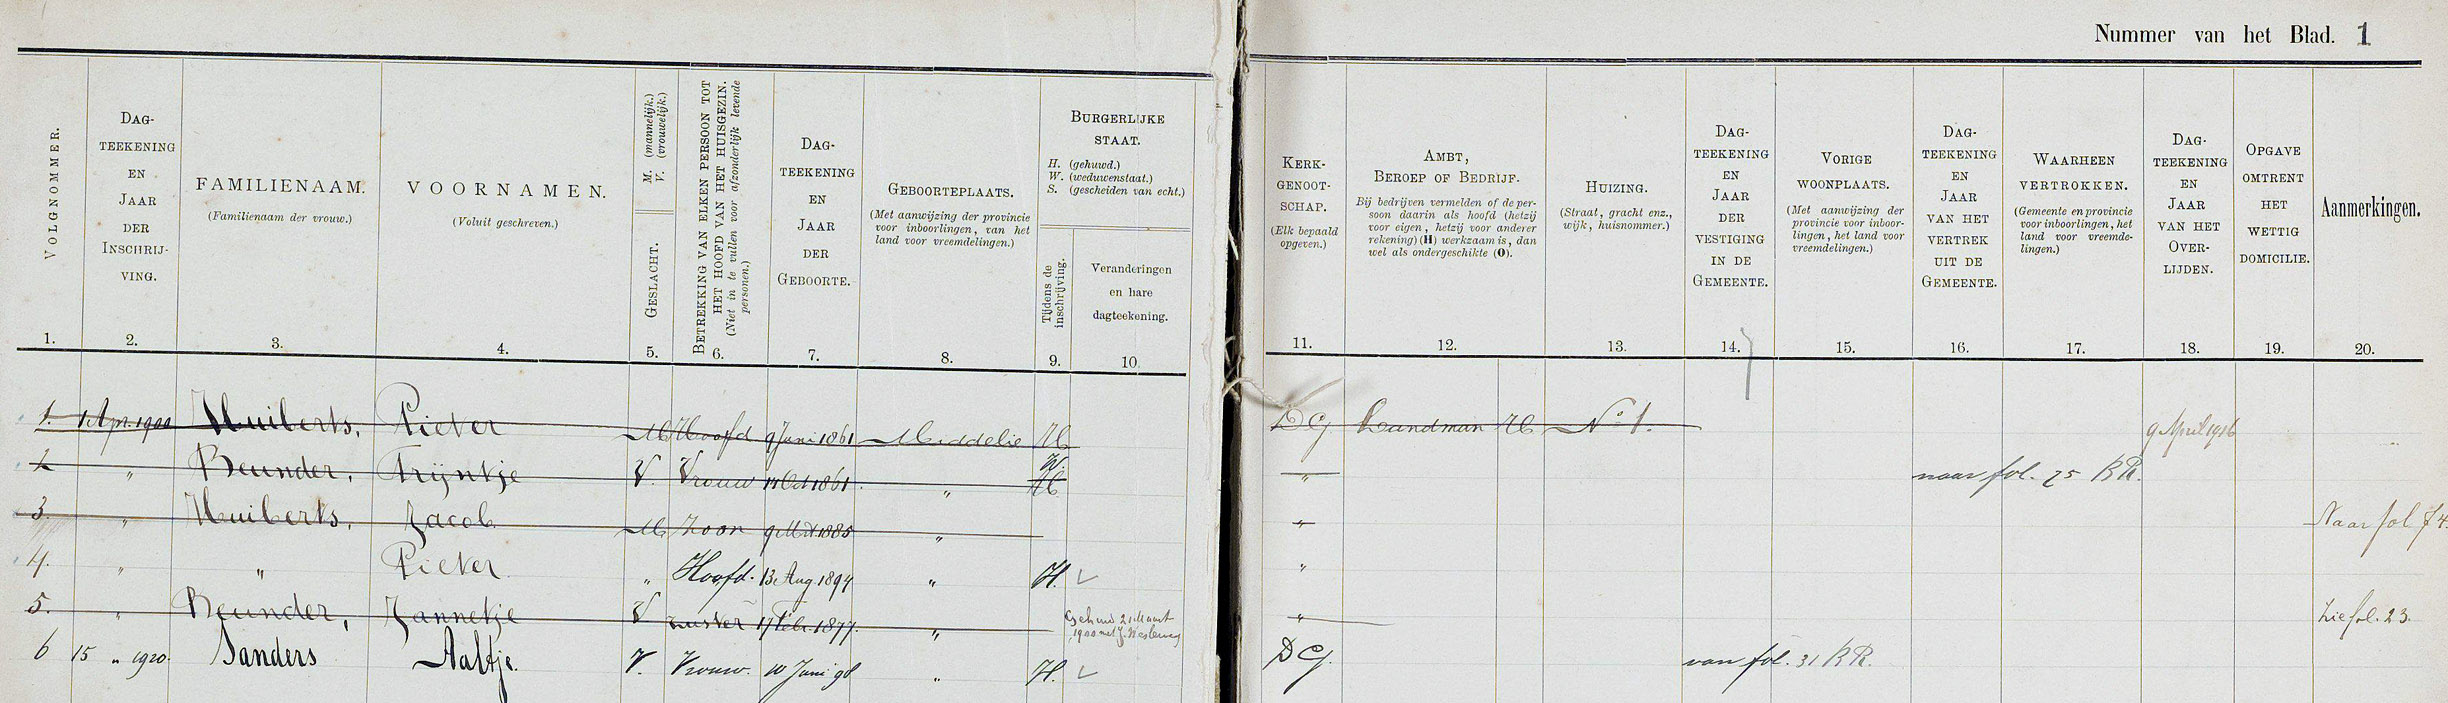 Nummer van het Blad. 1
VOLGNOMMER.
1.
DAG-
TEEKENING
EN
JAAR
DER
INSCHRIJ-
VING.
2.
FAMILIENAAM.
(Familienaam der vrouw.)
3.
VOORNAMEN.
(Voluit geschreven.)
4.
M. (mannelijk.)
V. (vrouwelijk.)
GESLACHT.
5.
BETREKKING VAN ELKEN PERSOON TOT
HET HOOFD VAN HET HUISGEZIN.
(Niet in te vullen voor afzonderlijk levende
personen.)
6.
DAG-
TEEKENING
EN
JAAR
DER
GEBOORTE.
7.
GEBOORTEPLAATS.
(Met aanwijzing der provincie
voor inboorlingen, van het
land voor vreemdelingen.)
8.
BURGERLIJKE
STAAT.
H. (gehuwd.)
W. (weduwenstaat.)
S. (gescheiden van echt.)
Tijdens de
inschrijving.
9.
Veranderingen
en hare
dagteekening.
10.
KERK-
GENOOT-
SCHAP.
(Elk bepaald
opgeven.)
11.
AMBT,
BEROEP OF BEDRIJF.
Bij bedrijven vermelden of de per-
soon daarin als hoofd (hetzij
voor eigen, hetzij voor anderer
rekening) (H) werkzaam is, dan
wel als ondergeschikte (O).
12.
HUIZING.
(Straat, gracht enz.,
wijk, huisnommer.)
13.
DAG-
TEEKENING
EN
JAAR
DER
VESTIGING
IN DE
GEMEENTE.
14.
VORIGE
WOONPLAATS.
(Met aanwijzing der
provincie voor inboor-
lingen, het land voor
vreemdelingen.)
15.
DAG-
TEEKENING
EN
JAAR
VAN HET
VERTREK
UIT DE
GEMEENTE.
16.
WAARHEEN
VERTROKKEN.
(Gemeente en provincie
voor inboorlingen, het
land voor vreemde-
lingen.)
17.
DAG-
TEEKENING
EN
JAAR
VAN HET
OVER-
LIJDEN.
18.
OPGAVE
OMTRENT
HET
WETTIG
DOMICILIE.
19.
Aanmerkingen.
20.
1. 1 Apr. 1900 Huiberts, Pieter M Hoofd 9 Juni 1861 Middelie H DG Landman H No 1. 9 April 1916
2. " Beunder, Trijntje V. Vrouw 14 Oct 1861 " W. H " naar fol. 75 BR.
3. " Huiberts, Jacob M Zoon 1885 " " Naar fol 74.
4. " " Pieter " Hoofd. 13 Aug. 1894 " H. "
5. " Beunder, Jannetje V Zuster 17 Febr. 1877. " Gehuwd 21 Maart 1900 met J. " Zie fol. 23.
6 15 " 1920. Sanders Aaltje. V. Vrouw. 10 Juni 98 " H. DG. van fol. 31 BR.